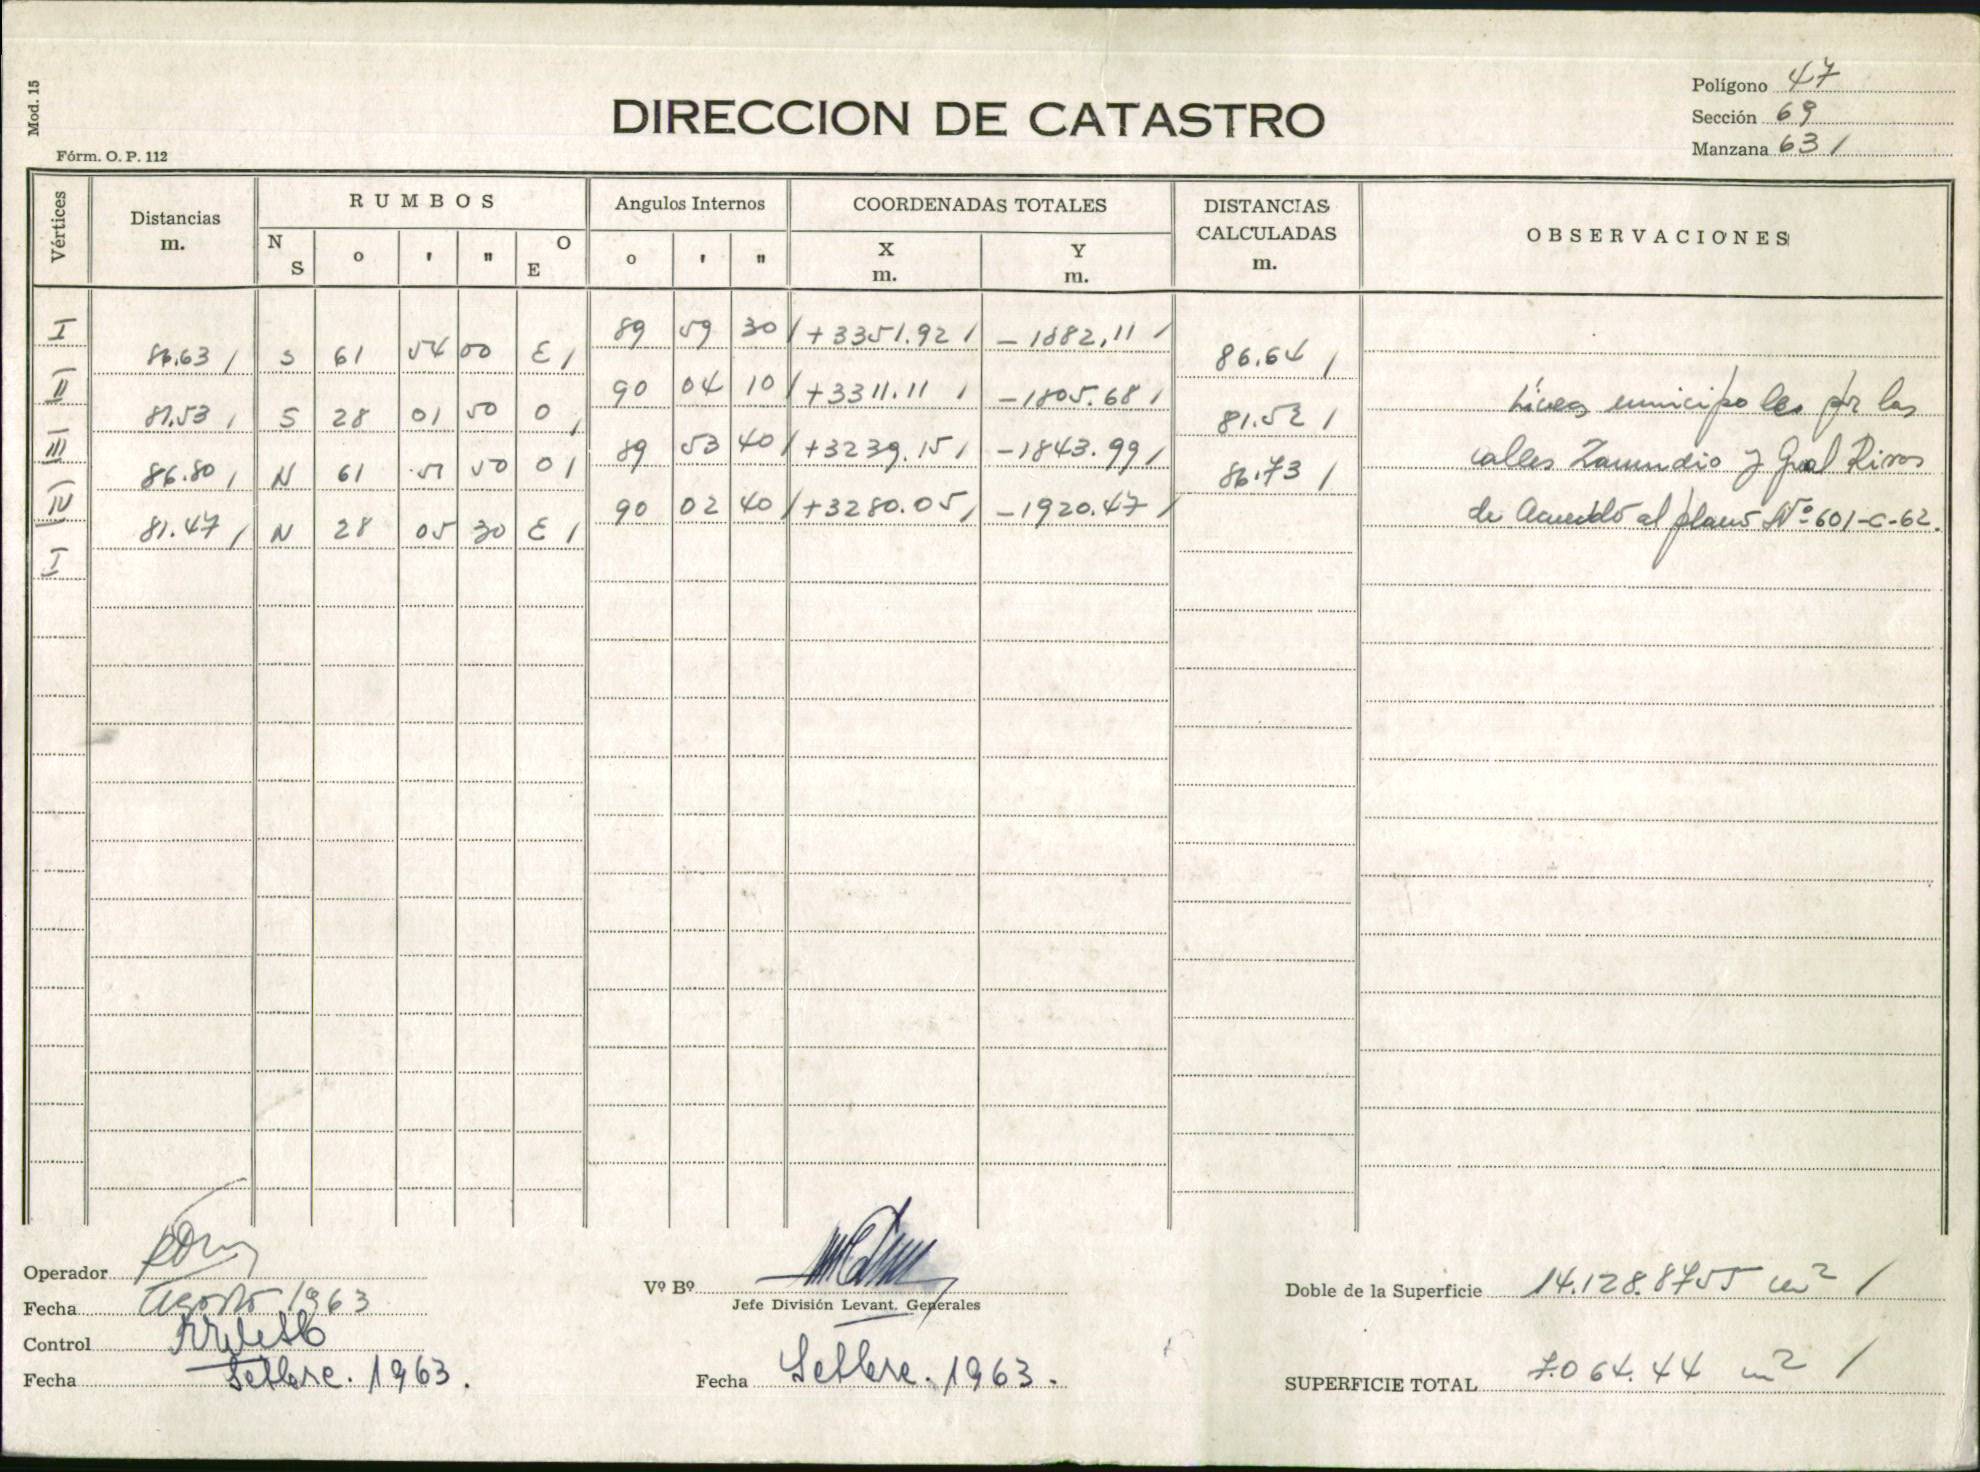 Mod. 15
Fórm. O. P. 112
DIRECCION DE CATASTRO
Polígono 47
Sección 69
Manzana 631
Vértices
Distancias m.
RUMBOS
N S o ' " O E
Angulos Internos
o ' "
COORDENADAS TOTALES
X m. Y m.
DISTANCIAS CALCULADAS m.
OBSERVACIONES
I 89 59 30 / +3351.92 / -1882,11 /
86.63 / S 61 54 00 E / 86.64 /
II 90 04 10 / +3311.11 / -1805.68 /
81.53 / S 28 01 50 O / 81.52 /
III 89 53 40 / +3239.15 / -1843.99 /
86.80 / N 61 51 50 O / 86.73 /
IV 90 02 40 / +3280.05 / -1920.47 /
81.47 / N 28 05 30 E /
I
Líneas municipales por las
calles Zamudio y Gral Rivas
de Acuerdo al plano Nº 601-C-62.
Operador
Fecha Agosto 1963
Control
Fecha Setbre. 1963.
Vº Bº
Jefe División Levant. Generales
Fecha Setbre. 1963.
Doble de la Superficie 14.128.8755 m² /
SUPERFICIE TOTAL 7.064.44 m² /